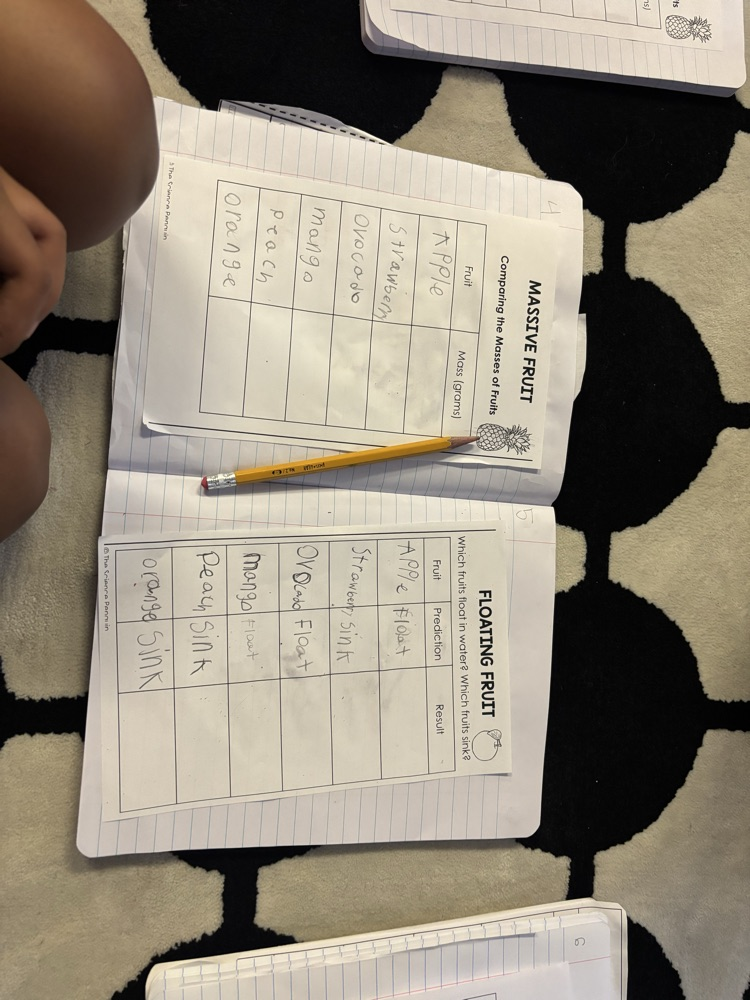 4
MASSIVE FRUIT
Comparing the Masses of Fruits
Fruit Mass (grams)
APPle
Strawberry
Ovocado
mango
peach
orange
5
FLOATING FRUIT
Which fruits float in water? Which fruits sink?
Fruit Prediction Result
APPle Float
Strawberry Sink
OVOcado Float
mango Float
Peach Sink
orange Sink
6